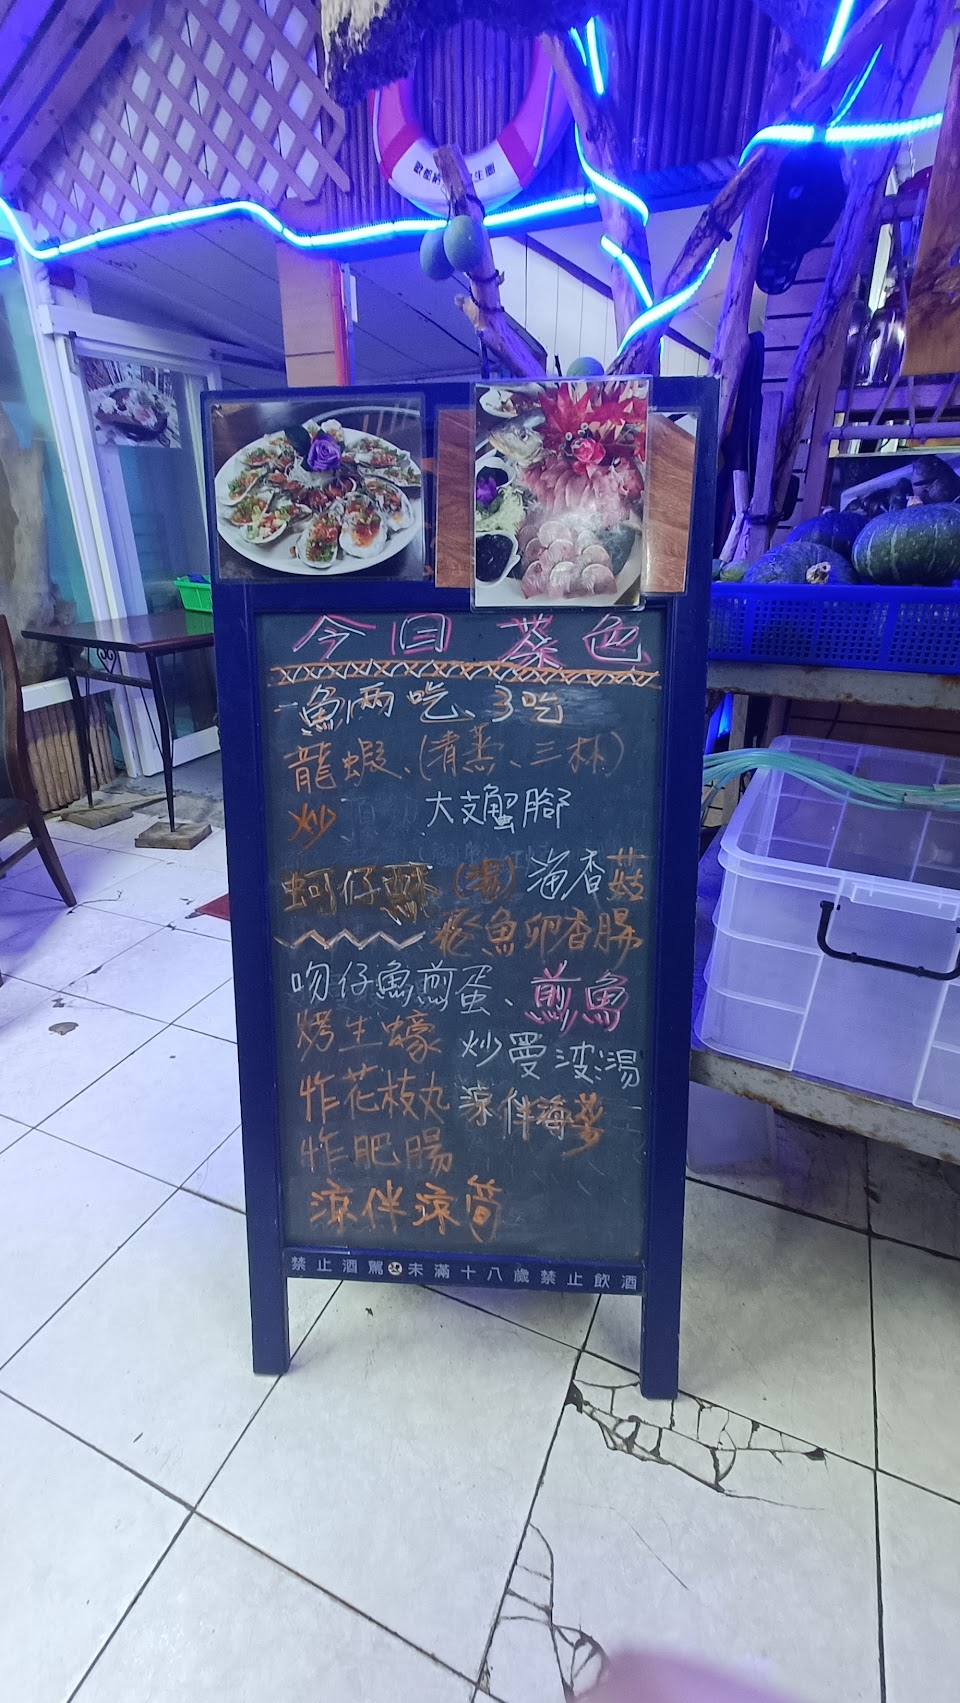 今日菜色
魚兩吃、3吃
龍蝦、(清蒸、三杯)
炒 大支蟹腳
蚵仔酥 (湯) 海香菇
飛魚卵香腸
吻仔魚煎蛋、煎魚
烤生蠔 炒曼波湯
炸花枝丸 涼伴海蔘
炸肥腸
涼伴涼筒
禁止酒駕 未滿十八歲禁止飲酒